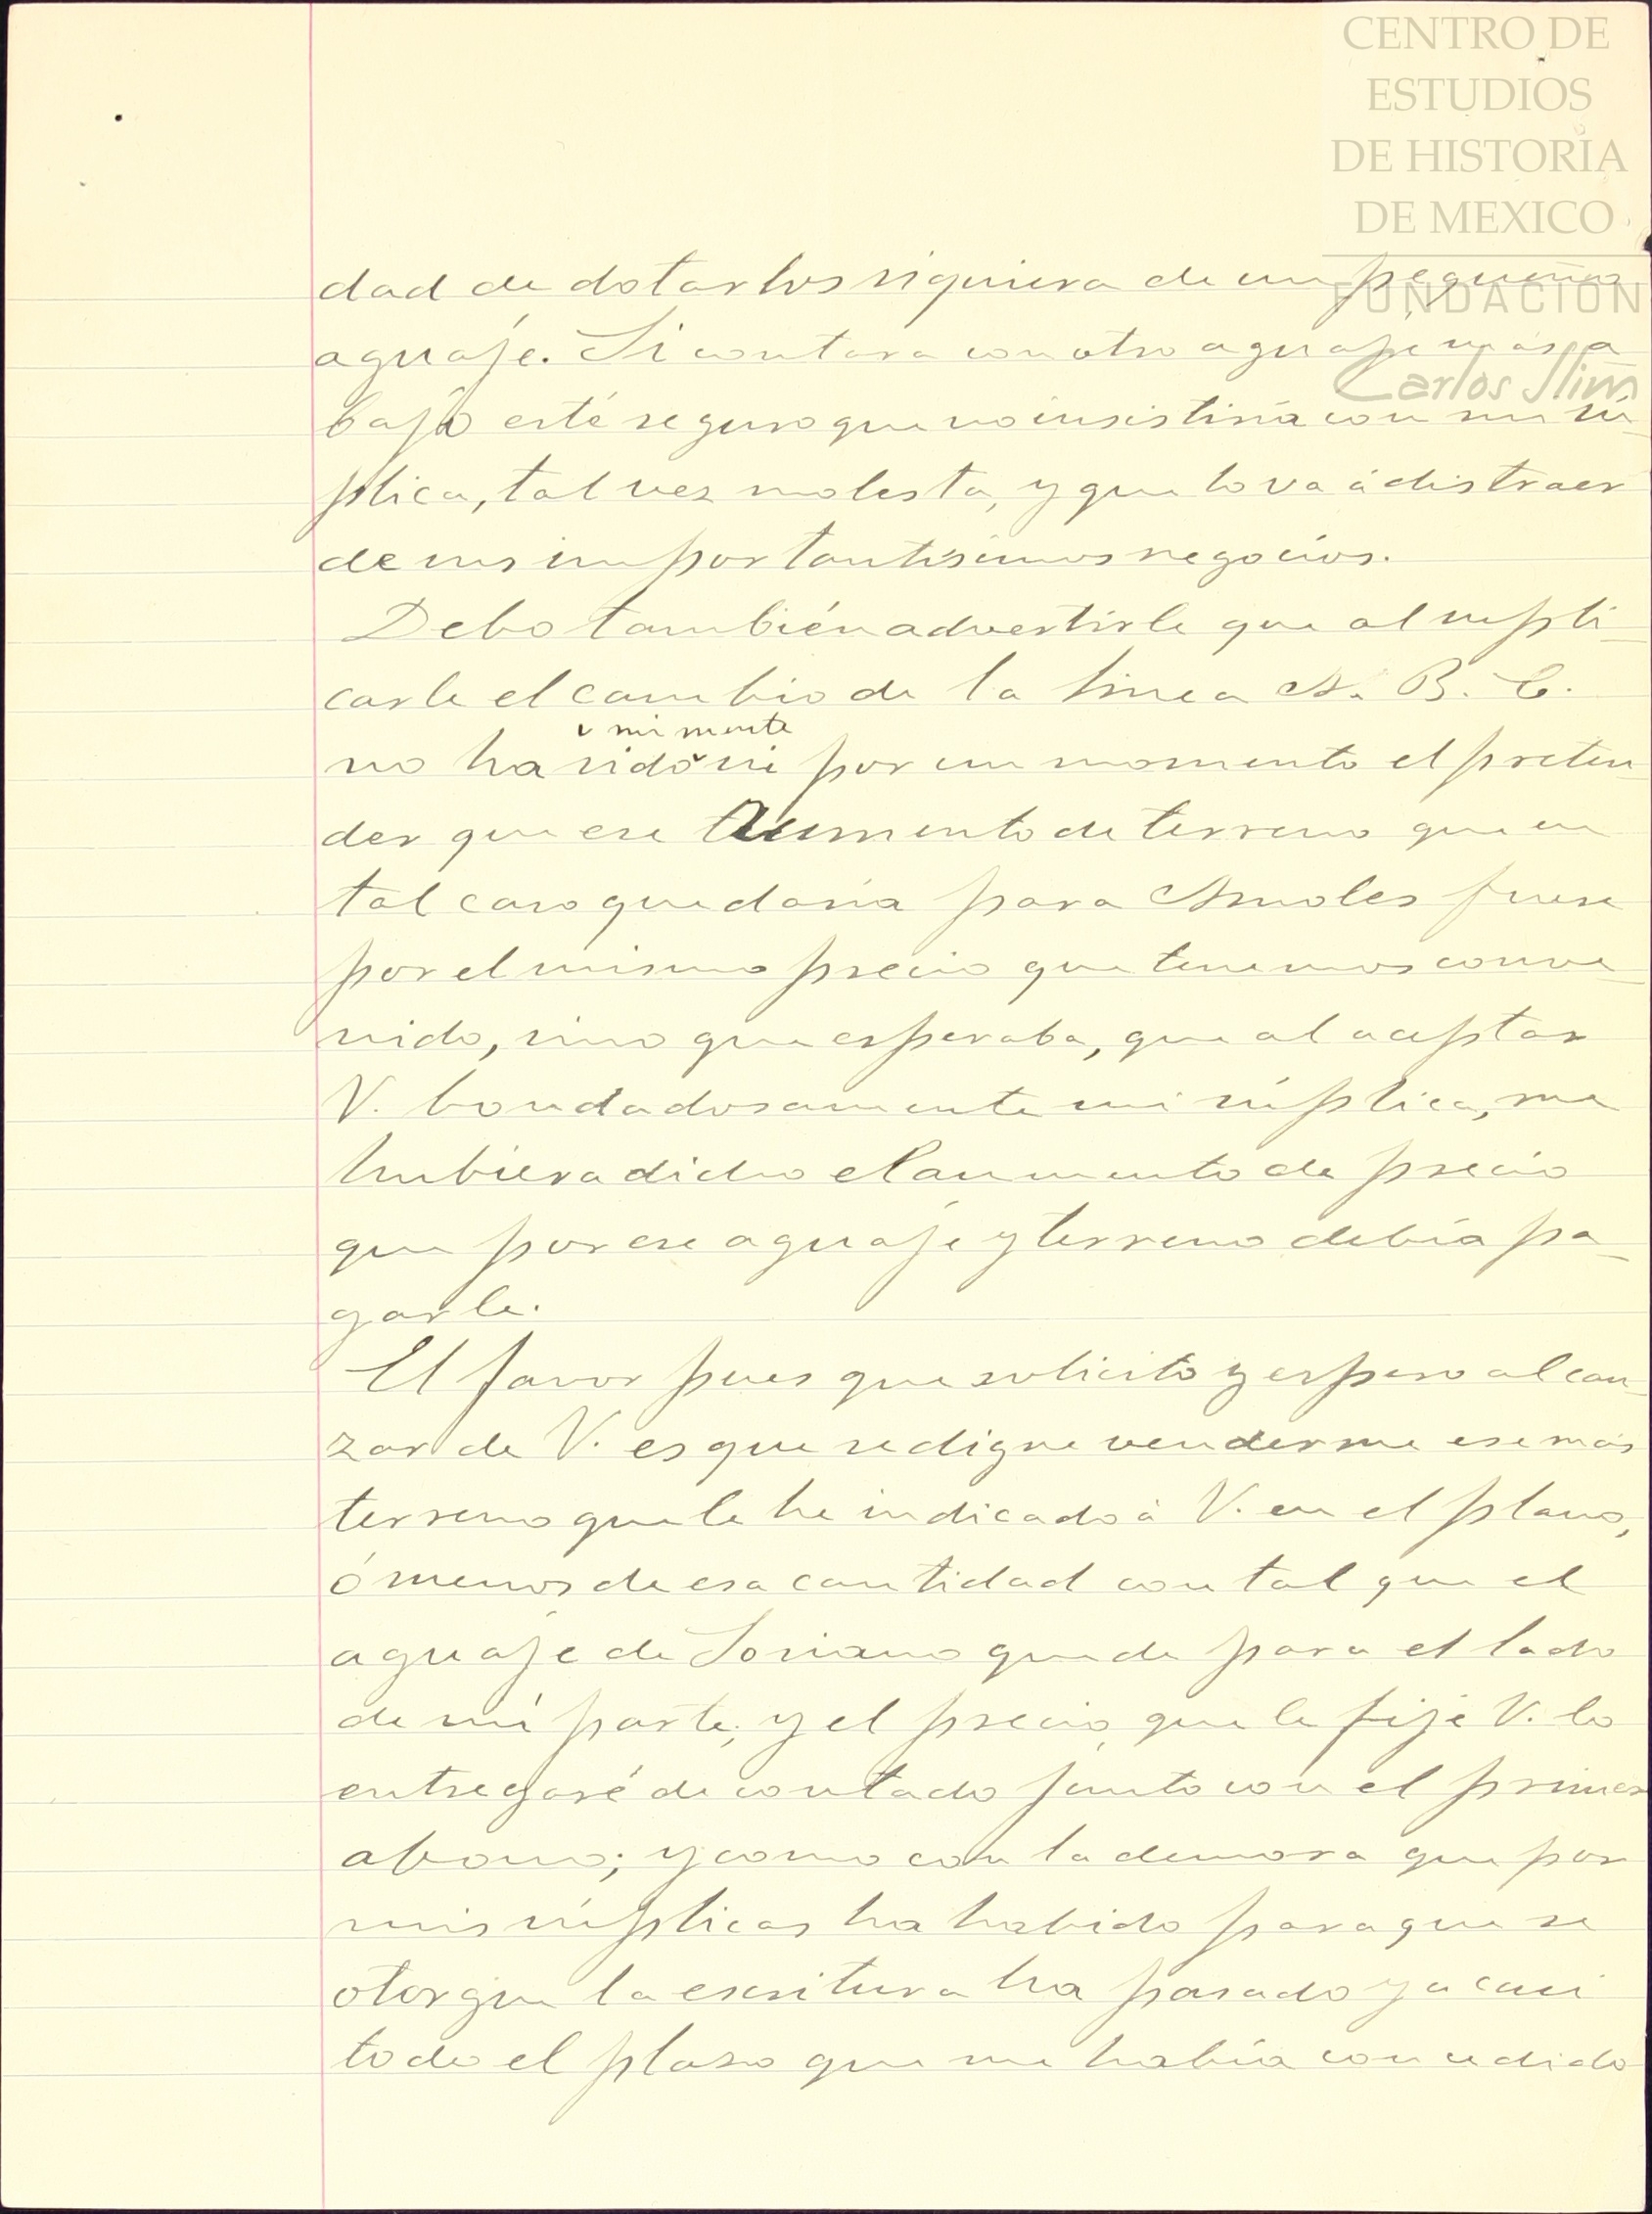 CENTRO DE
ESTUDIOS
DE HISTORIA
DE MEXICO
FUNDACION
Carlos Slim
dad de dotarlos siquiera de un pequeños
aguaje. Si contara con otro aguaje más a
bajo esté seguro que no insistiría con mi sú-
plica, tal vez molesta, y que lo va á distraer
de sus importantísimos negocios.
Debo también advertirle que al supli-
carle el cambio de la linea A. B. C.
no ha sido ni por un momento el preten
mi mente
der que ese Aumento de terreno que en
tal caso quedaría para Amoles fuese
por el mismo precio que tenemos conve-
nido, sino que esperaba, que al aceptar
V. bondadosamente mi súplica, me
hubiera dicho el aumento de precio
que por ese aguaje y terreno debía pa-
garle.
El favor pues que solicito y espero alcan-
zar de V. es que se digne venderme ese más
terreno que le he indicado á V. en el plano,
ó menos de esa cantidad con tal que el
aguaje de Soriano quede para el lado
de mi parte; y el precio, que le fije V. lo
entregaré de contado junto con el primer
abono; y como con la demora que por
mis súplicas ha habido para que se
otorgue la escritura ha pasado ya casi
todo el plazo que me había concedido